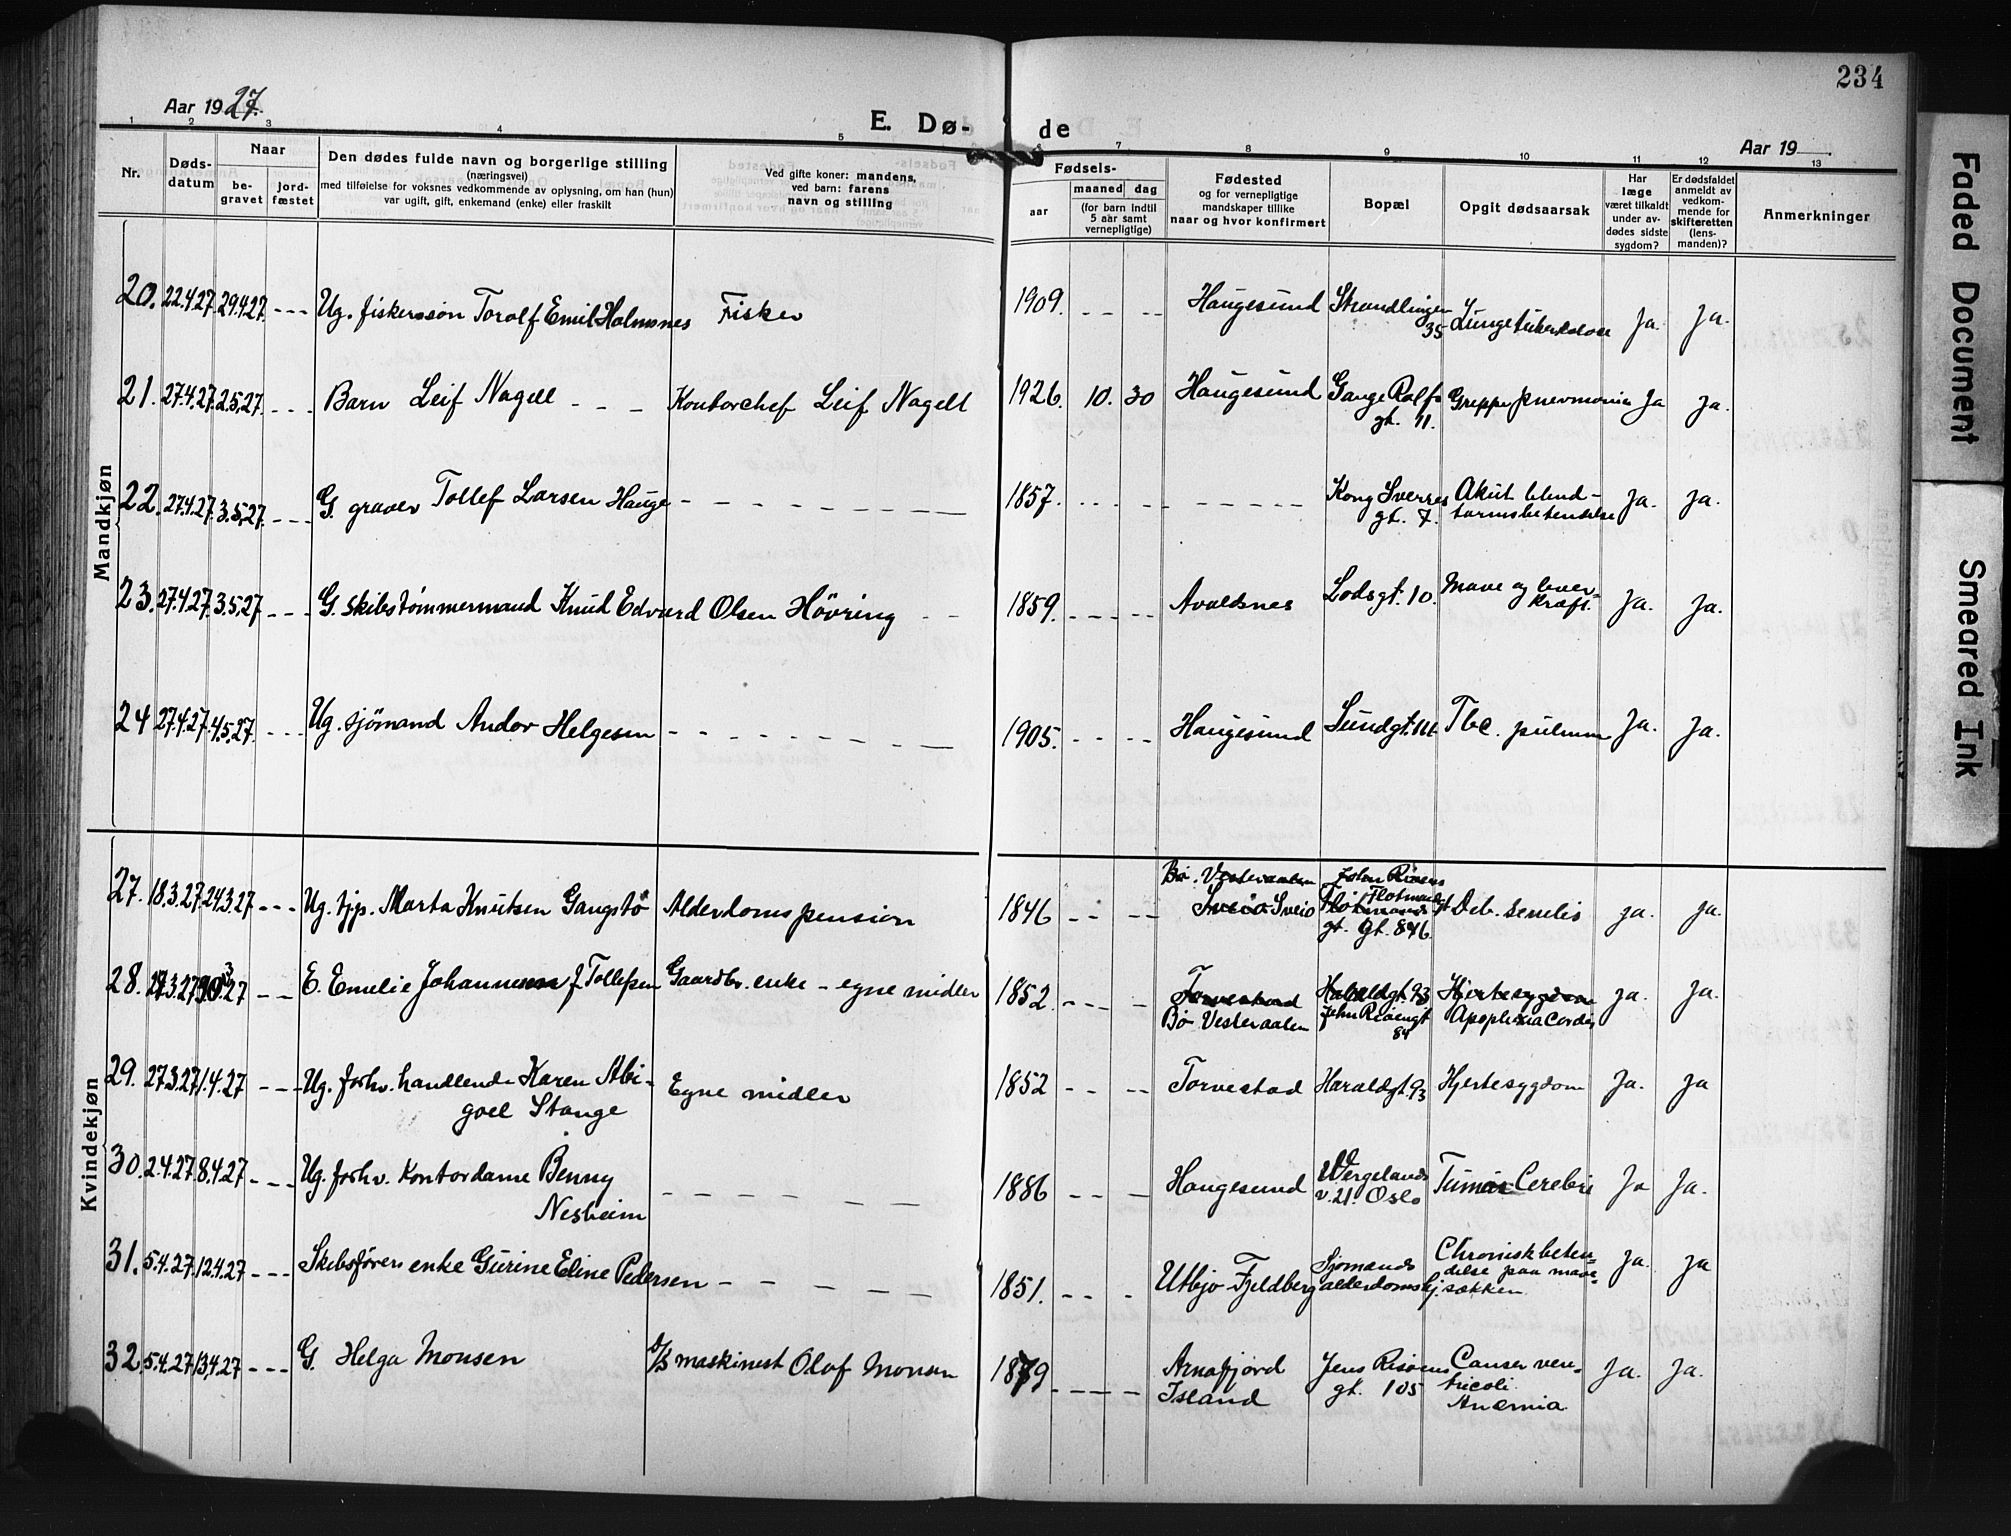 234
Aar 1927.
E. Dø-
de
Aar 19
1 2 3 4 5 6 7 8 9 10 11 12 13
Nr.
Døds-
datum
Naar
be-
gravet
jord-
fæstet
Den dødes fulde navn og borgerlige stilling
(næringsvei)
med tilføielse for voksnes vedkommende av oplysning, om han (hun)
var ugift, gift, enkemand (enke) eller fraskilt
Ved gifte koner: mandens,
ved barn: farens
navn og stilling
Fødsels-
aar
maaned
dag
(for barn indtil
5 aar samt
vernepligtige)
Fødested
og for vernepligtige
mandskaper tillike
naar og hvor konfirmert
Bopæl
Opgit dødsaarsak
Har
læge
været tilkaldt
under av-
dødes sidste
sygdom?
Er dødsfaldet
anmeldt av
vedkom-
mende for
skifteretten
(lens-
manden)?
Anmerkninger
Mandkjøn
20. 22.4.27. 29.4.27. - - - Ug. fiskersøn Toralf Emil Holmsnes Fisker 1909. - - - - Haugesund Strandlingen
35 Lungetuberkulose Ja. Ja.
21. 27.4.27. 2.5.27. - - - Barn Leif Nagell - - - Kontorchef Leif Nagell 1926. 10. 30 Haugesund Gange Rolfs
gt. 11. Grippe pnevmonia Ja Ja.
22. 27.4.27. 3.5.27. - - - G. graver Tollef Larsen Hauge - - - - - - - 1857. - - - - - - - - - - Kong Sverres
gt. 7. Akut blind-
tarmsbetendelse Ja. Ja.
23. 27.4.27. 3.5.27 - - - G. skibstømmermand Knud Edvard Olsen Hövring - - 1859. - - - - - Avaldsnes Lodsgt. 10. Mave og lever-
kræft. Ja. Ja.
24 27.4.27. 4.5.27. - - - Ug. sjømand Andor Helgesen - - - - - - - - 1905. - - - - Haugesund Sundgt. 111. Tbc. pulmon Ja. Ja.
Kvindekjøn
27. 18.3.27. 24.3.27 - - - Ug. tjp. Marta Knutsen Gangstø Alderdomspension 1846 - - - - Bø. Vesteraalen
Sveio Sveio John Risøens
Flotmandsgt
gt. gt. 846. Deb. senilis Ja. Ja.
28. 3.27 3.27 - - E. Emelie Johannesen f. Tollefsen Gaardbr. enke - egne midler 1852. - - - - Torvestad
Bø Vesteraalen Haraldgt. 93
John Risøengt
84 Hjertesygdom
Apoplexia Cordis Ja. Ja.
29. 27.3.27. 1.4.27 - - - Ug. forhv. handlende Karen Abi-
gael Stange Egne midler 1852 - - - - Torvestad Haraldgt. 93 Hjertesygdom Ja. Ja
30. 2.4.27. 8.4.27 - - - Ug. forhv. Kontordame Benny
Nesheim - - - - - - 1886 - - - Haugesund Wergelands
v. 21. Oslo Tumor Cerebri Ja Ja.
31. 5.4.27. 12.4.27 - - - Skibsførers enke Gurine Eline Pedersen - - - - - - 1851. - - - Utbjo Fjeldberg Sjømands
alderdomshj. Chronisk beten-
delse paa mave-
sækken Ja. Ja
32. 5.4.27 13.4.27 - - - G. Helga Monsen d/s maskinist Olaf Monsen 1879 - - - - - Arnafjord
Island Jens Risøens
gt. 105 Canser ven-
tricoli
Anæmia Ja. Ja.
Faded Document
Smeared Ink